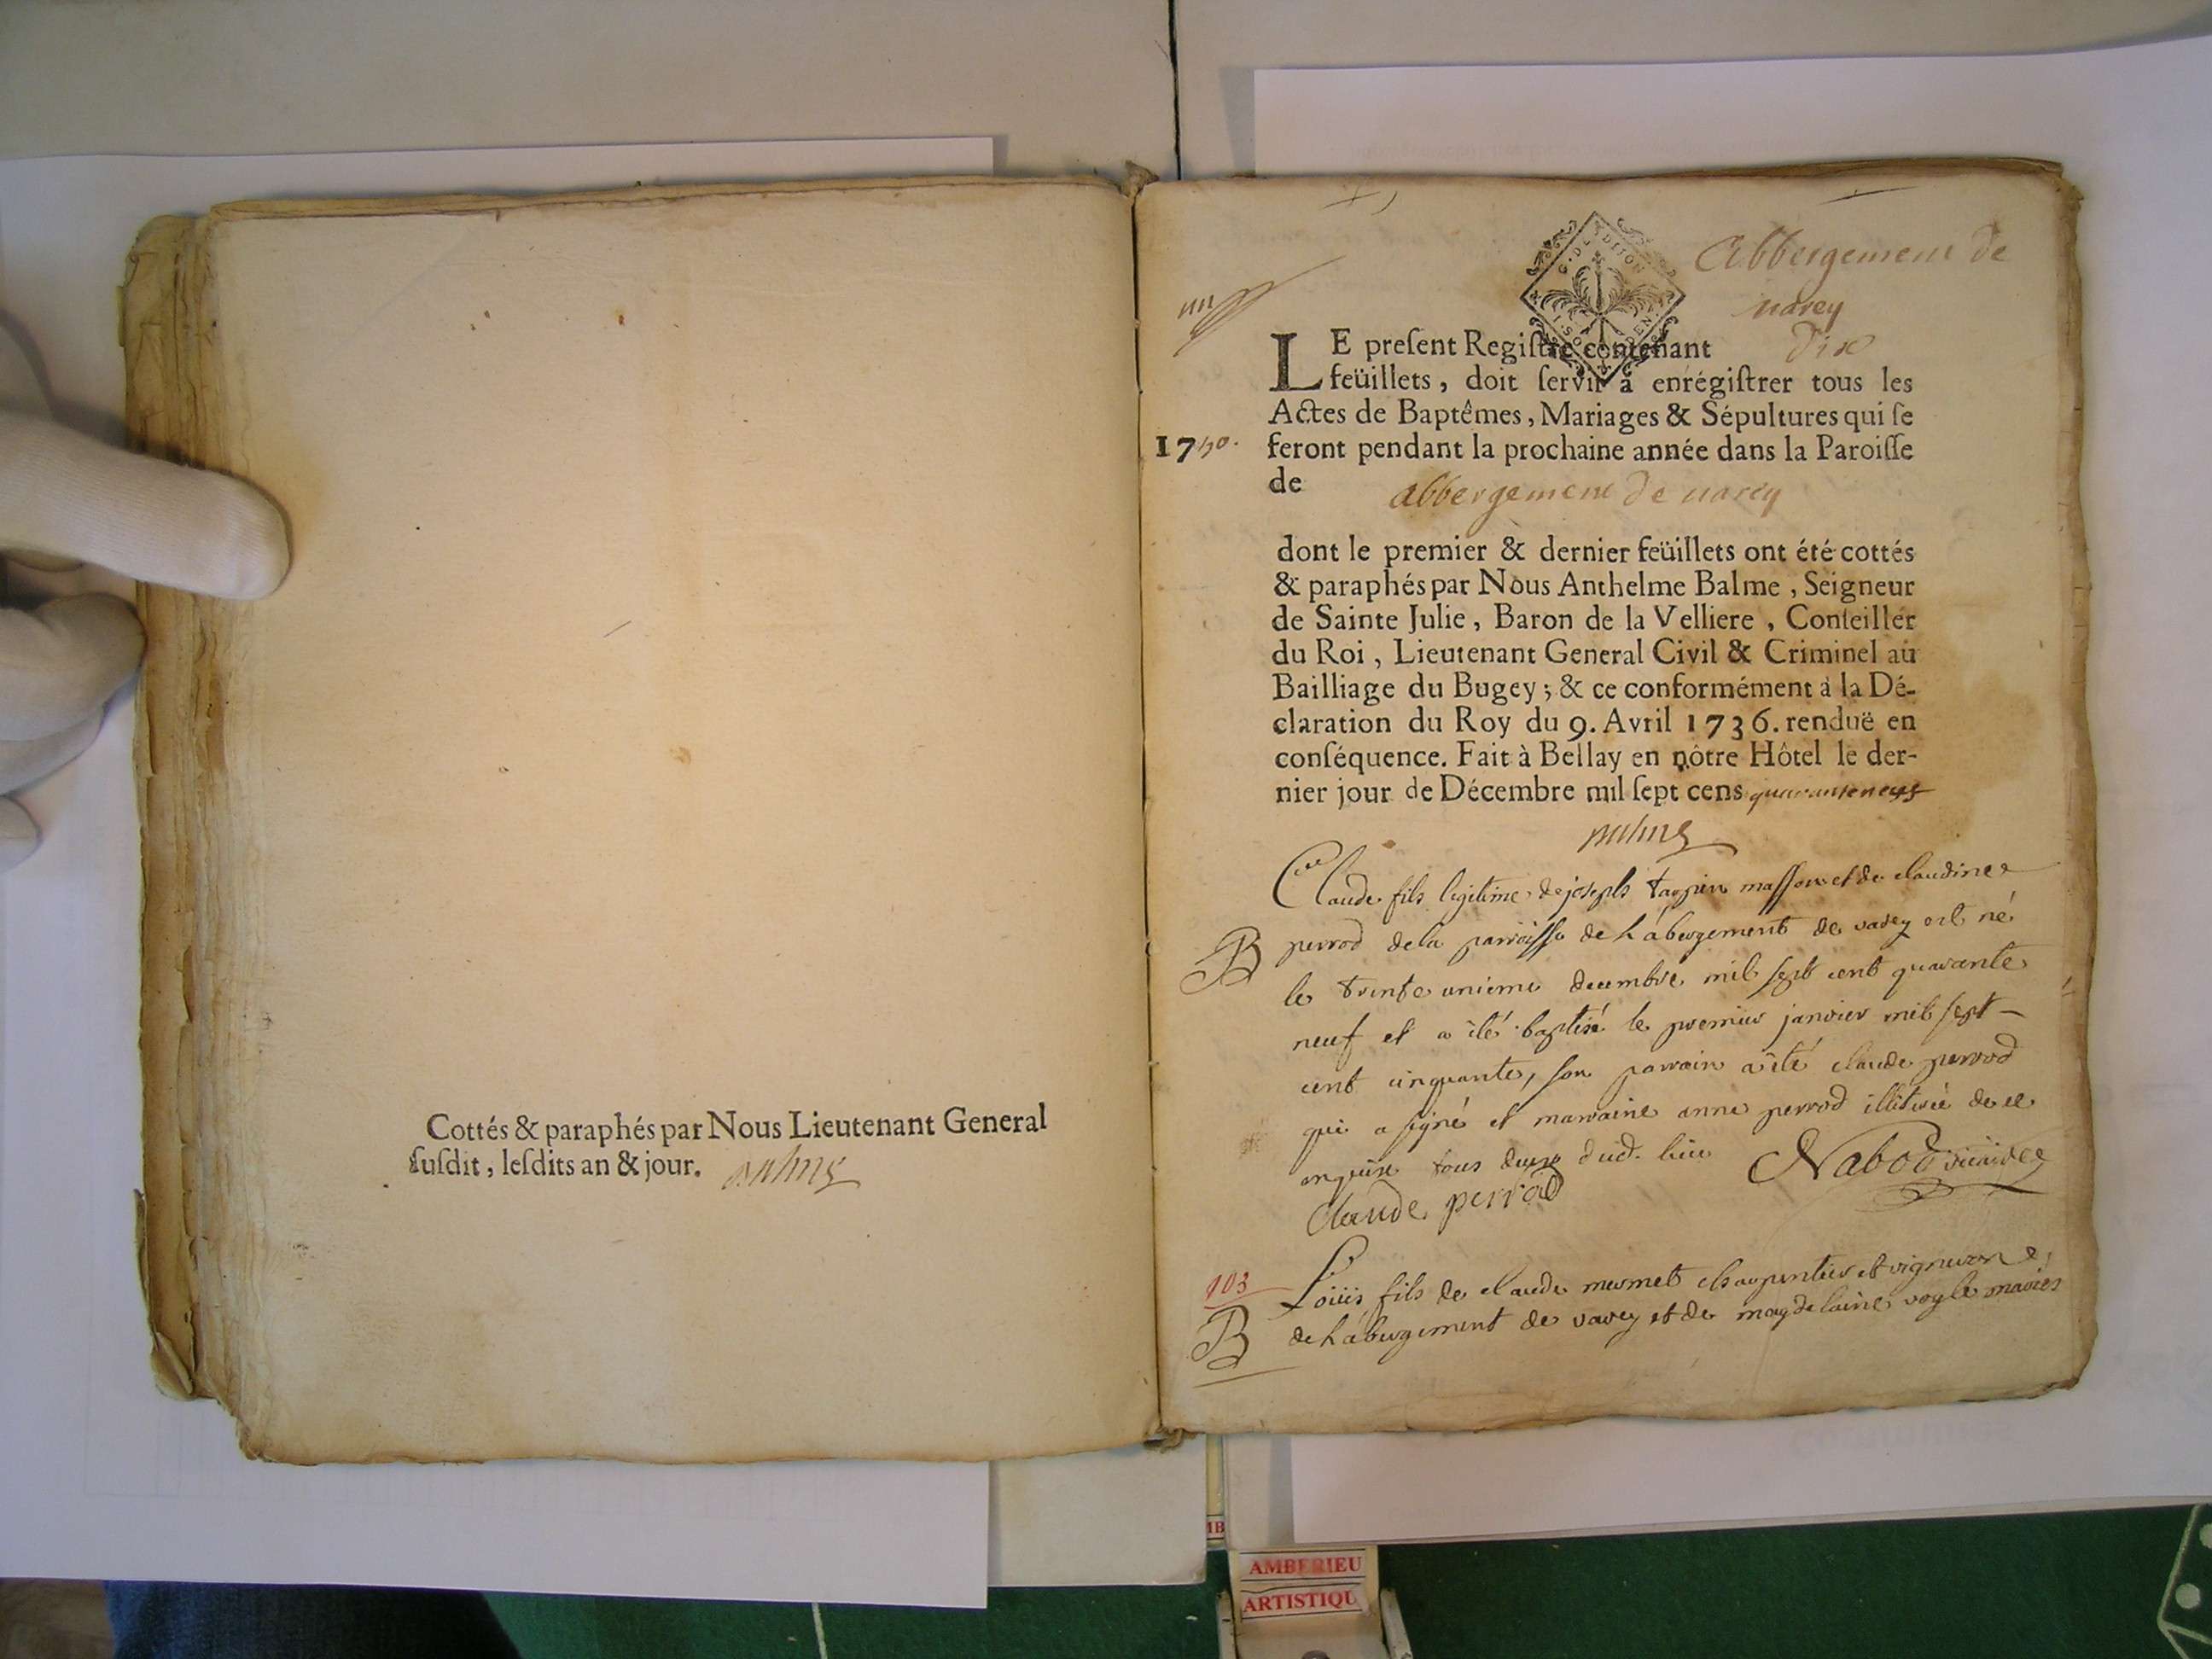 Cottés & paraphés par Nous Lieutenant General
ſuſdit, leſdits an & jour. Balme
Abbergement de
varey
LE preſent Regiſtre contenant dix
feüillets, doit ſervir à enrégiſtrer tous les
Actes de Baptêmes, Mariages & Sépultures qui ſe
1750. feront pendant la prochaine année dans la Paroiſſe
de abbergement de varey
dont le premier & dernier feüillets ont été cottés
& paraphés par Nous Anthelme Balme, Seigneur
de Sainte Julie, Baron de la Velliere, Conſeiller
du Roi, Lieutenant General Civil & Criminel au
Bailliage du Bugey; & ce conformément à la Dé-
claration du Roy du 9. Avril 1736. renduë en
conſéquence. Fait à Bellay en nôtre Hôtel le der-
nier jour de Décembre mil ſept cens quaranteneuf
Balme
Claude fils legitime de joseph tarpin masson et de claudine
B perrod de la parroisse de l'abergement de varey est né
le trente unieme decembre mil sept cent quarante
neuf et a été baptisé le premier janvier mil sept
cent cinquante, son parrain a été claude perrod
qui a signé et marraine anne perrod illiterée de ce
enquise tous deux dud. lieu Nabod vicaire
Claude perrod
103
Loüis fils de claude mermet charpentier et vigneron
B de l'abergement de varey et de magdelaine vogle mariés